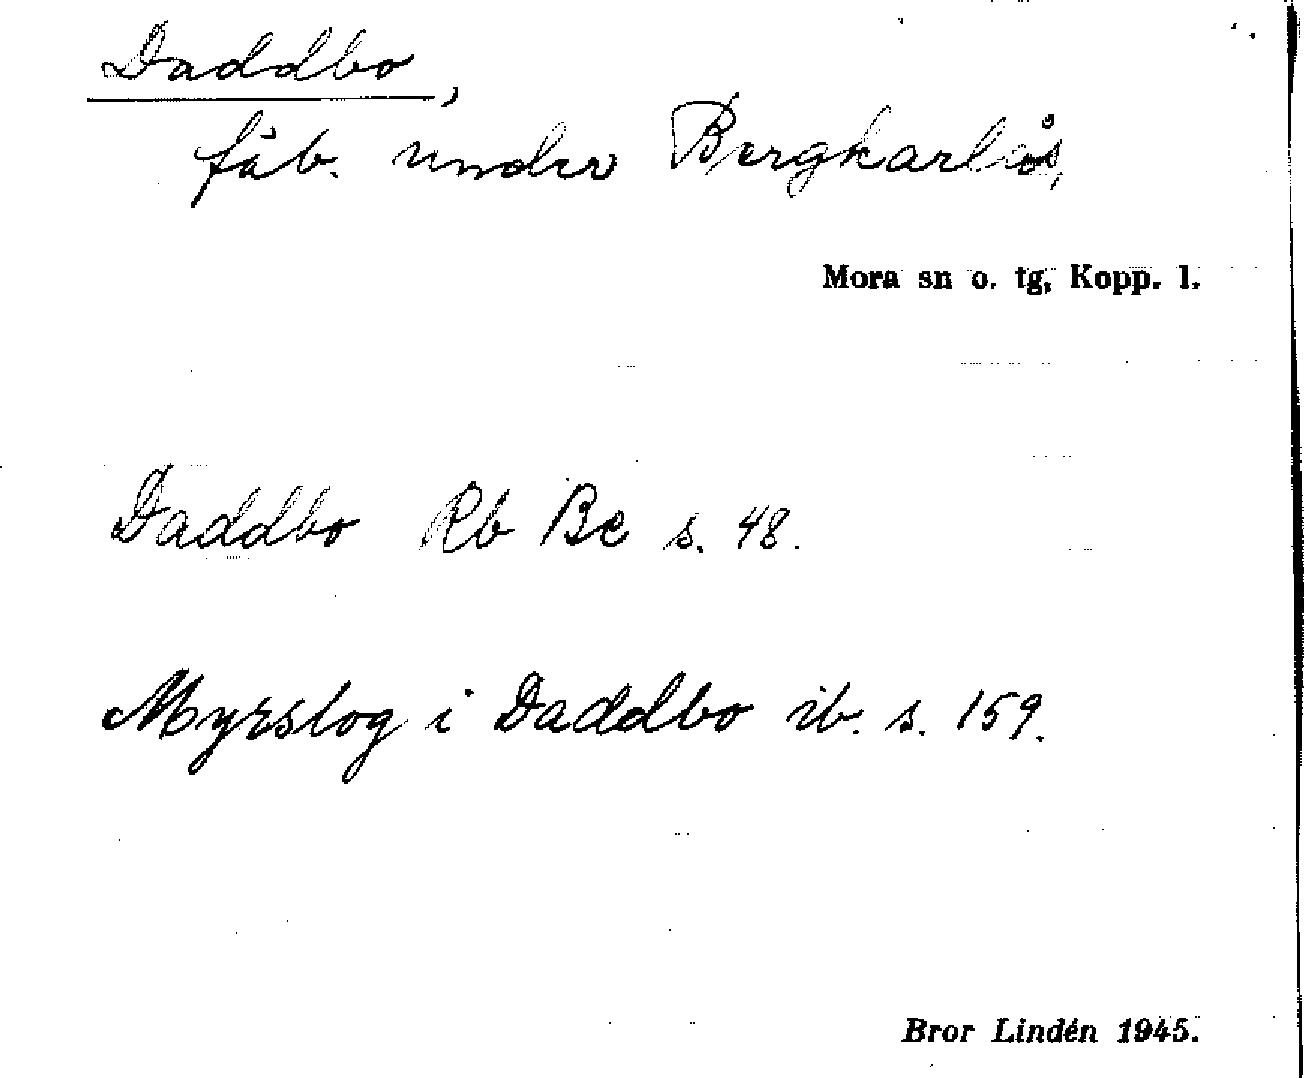 Daddbo,
fäb. under Bergkarlås,
Mora sn o. tg, Kopp. l.
Daddbo Rb Bc s. 48.
Myrslog i Daddbo ib. s. 159.
Bror Lindén 1945.